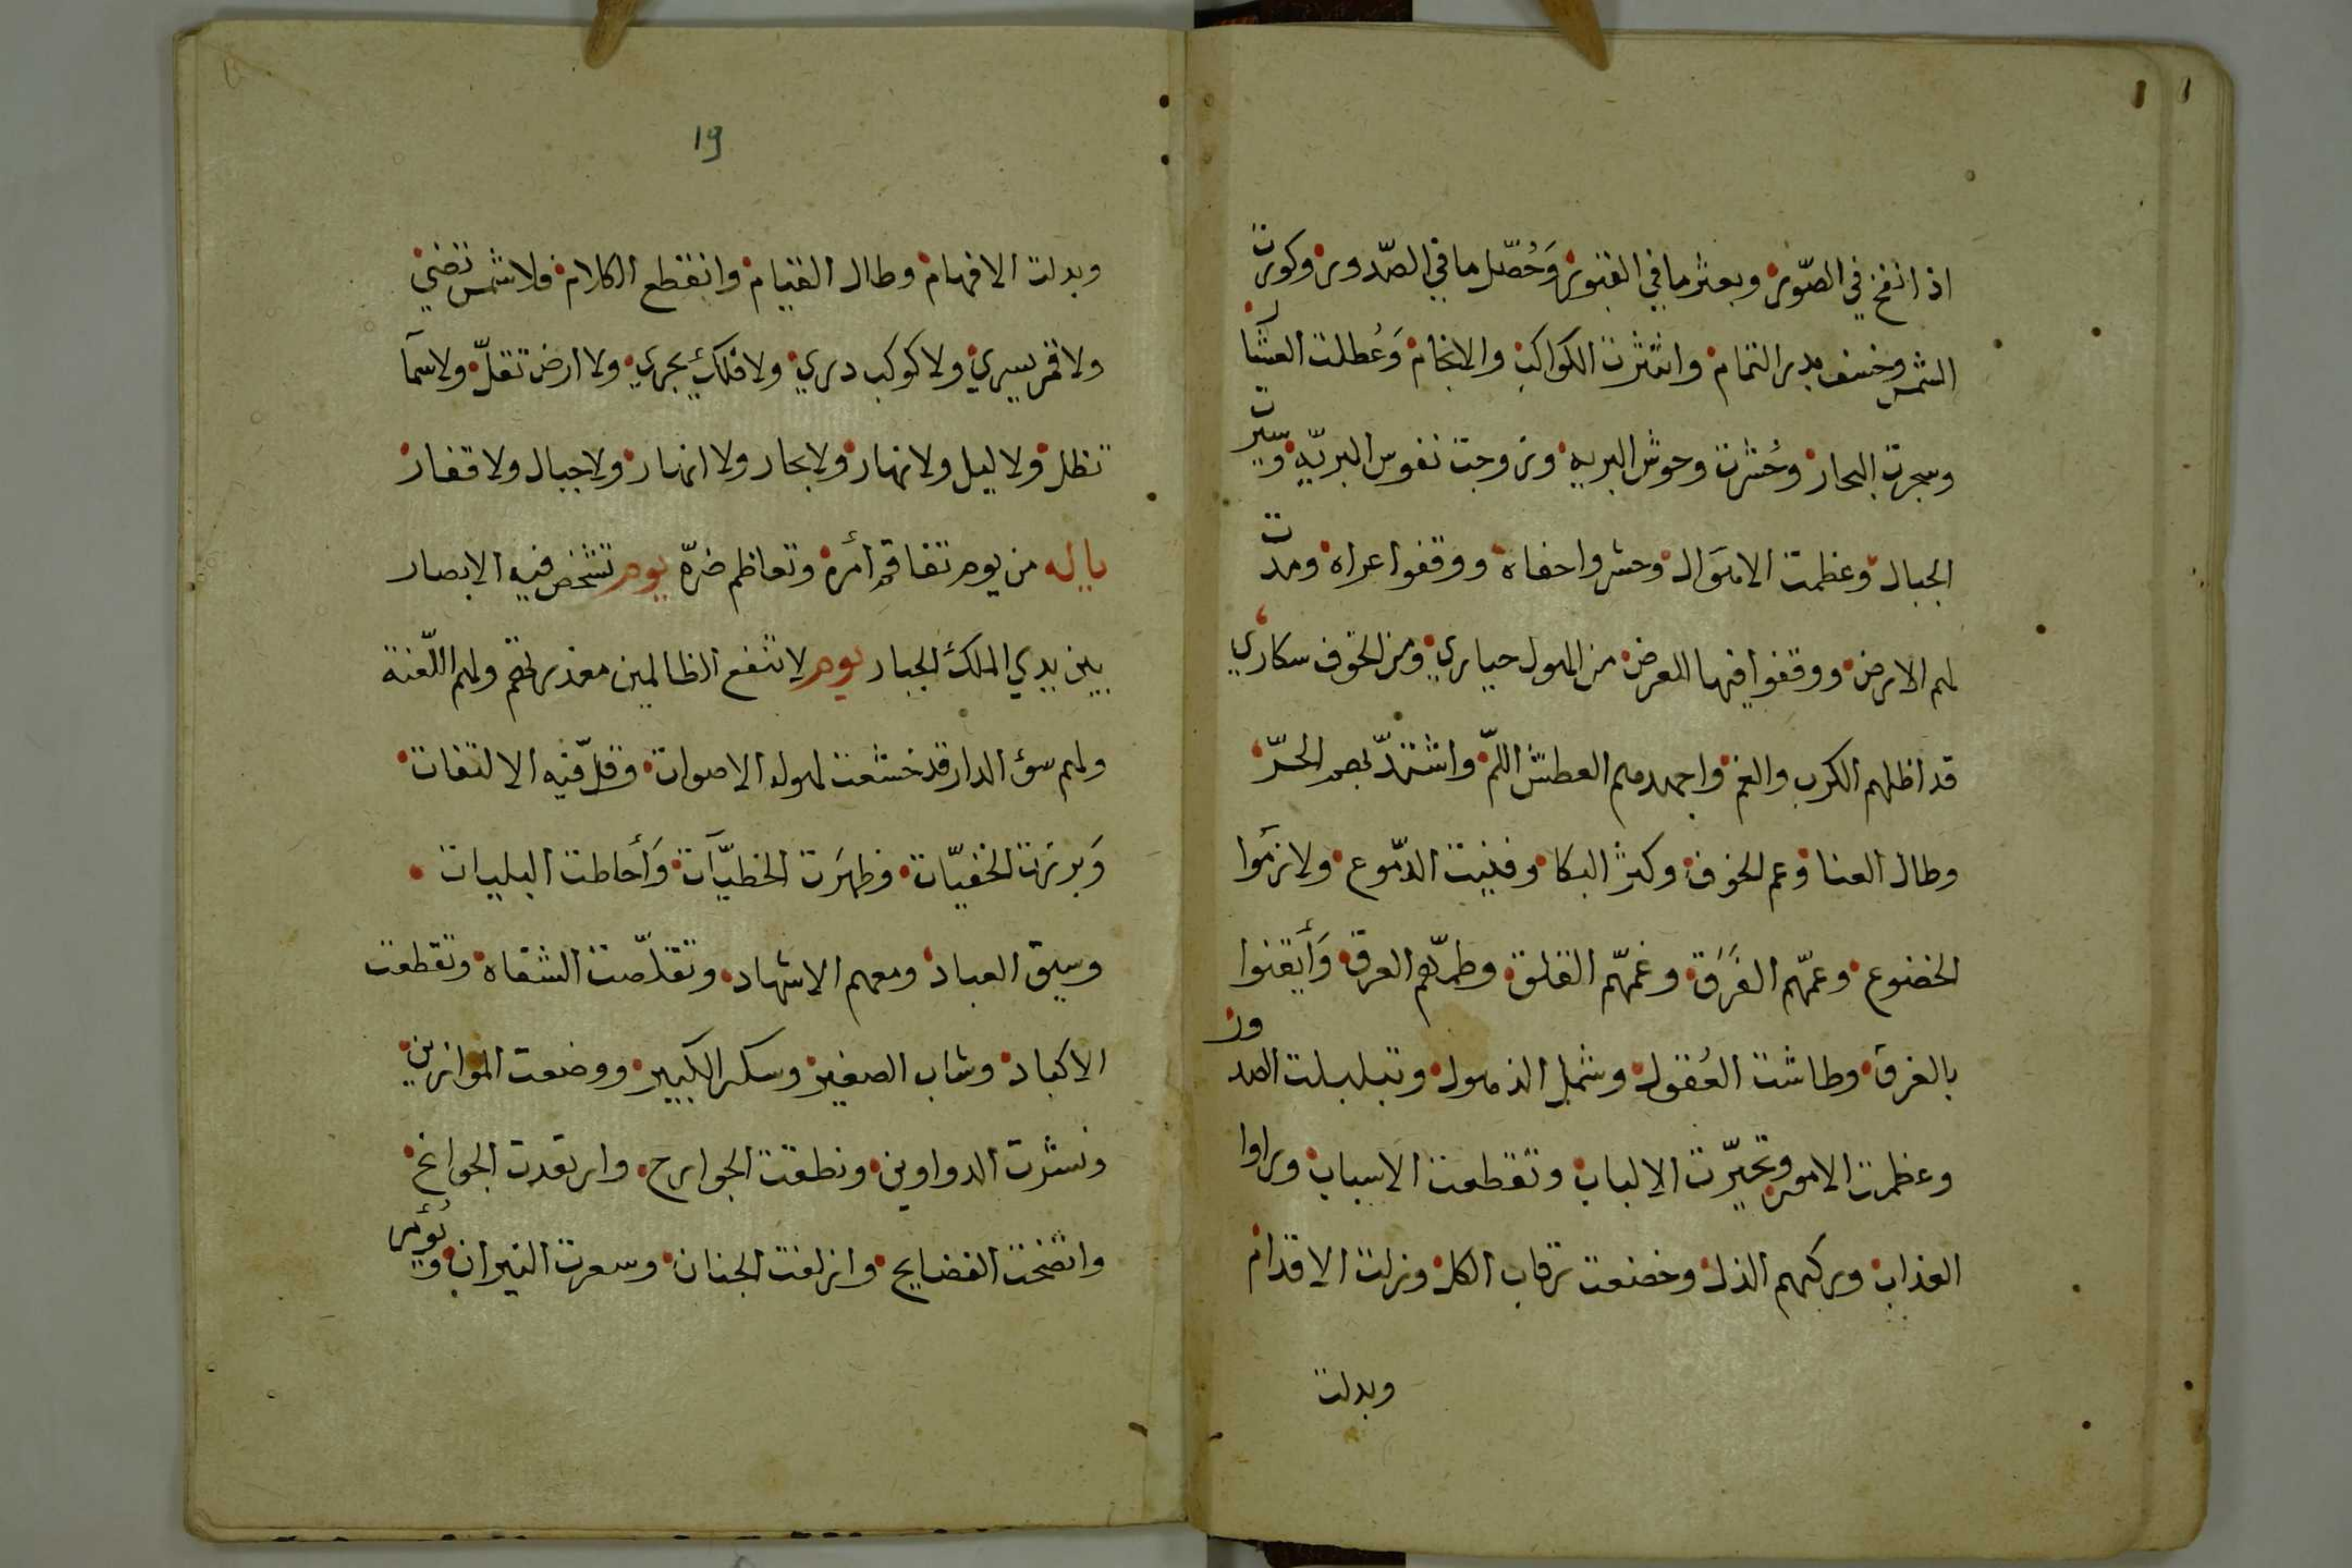 اذا نفخ في الصّور وبعثر ما في القبور وَحُصّل ما في الصّدور وكورت
الشمس وخسف بدر التمام وانتثرت الكواكب والانجام وَعُطلت العشآر
وسجرت البحار وحُشرت وحوش البريه وزوجت نفوس البريّه وسيرت
الجبال وعظمت الاهوَال وحشروا حفاة ووقفوا عراه ومدّت
لهم الارض ووقفوا فيها للعرض من الهول حيارى ومن الخوف سكارى
قد اظلهم الكرب والغم واجهدهم العطش اللمّ واشتدّ بهم الحرّ
وطال العنا وعم الخوف وكثر البكا وفنيت الدّموع ولازمَوا
الخضوع وعمّهم الفَرَق وغمّهم القلق وطمّهم العرق وَأَيقنوا
بالغرق وطاشت العُقول وشمل الذهول وتبلبلت الصدور
وعظمت الامور وتحيّرت الالباب وتقطعت الاسباب وراوا
العذاب وركبهم الذل وخضعت رقاب الكل وزلت الاقدام
وبدلت
19
وبدلت الافهام وطال القيام وانقطع الكلام فلا شمس تضئ
ولا قمر يسري ولا كوكب دري ولا فلك يجري ولا ارض تقلّ ولا سمآ
تظل ولا ليل ولا نهار ولا بحار ولا انهار ولا جبال ولا قفار
يا له من يوم تفاقم أمره وتعاظم ضرّه يوم تشخص فيه الابصار
بين يدي الملك الجبار يوم لا تنفع الظالمين معذرتهم ولهم اللّعنة
ولهم سؤ الدار قد خشعت لهوله الاصوات وقلّ فيه الالتفات
وَبرزت الخفيّات وظهرَت الخطيّآت وَأحاطت البليات
وسيق العباد ومعهم الاشهاد وتقلّصت الشفاه وتقطعت
الاكباد وشاب الصغير وسكر الكبير ووضعت الموازين
ونشرت الدواوين ونطقت الجوارح وارتعدت الجوانح
واتضحت الفضايح وازلفت الجنان وسعرت النيران ويؤمر